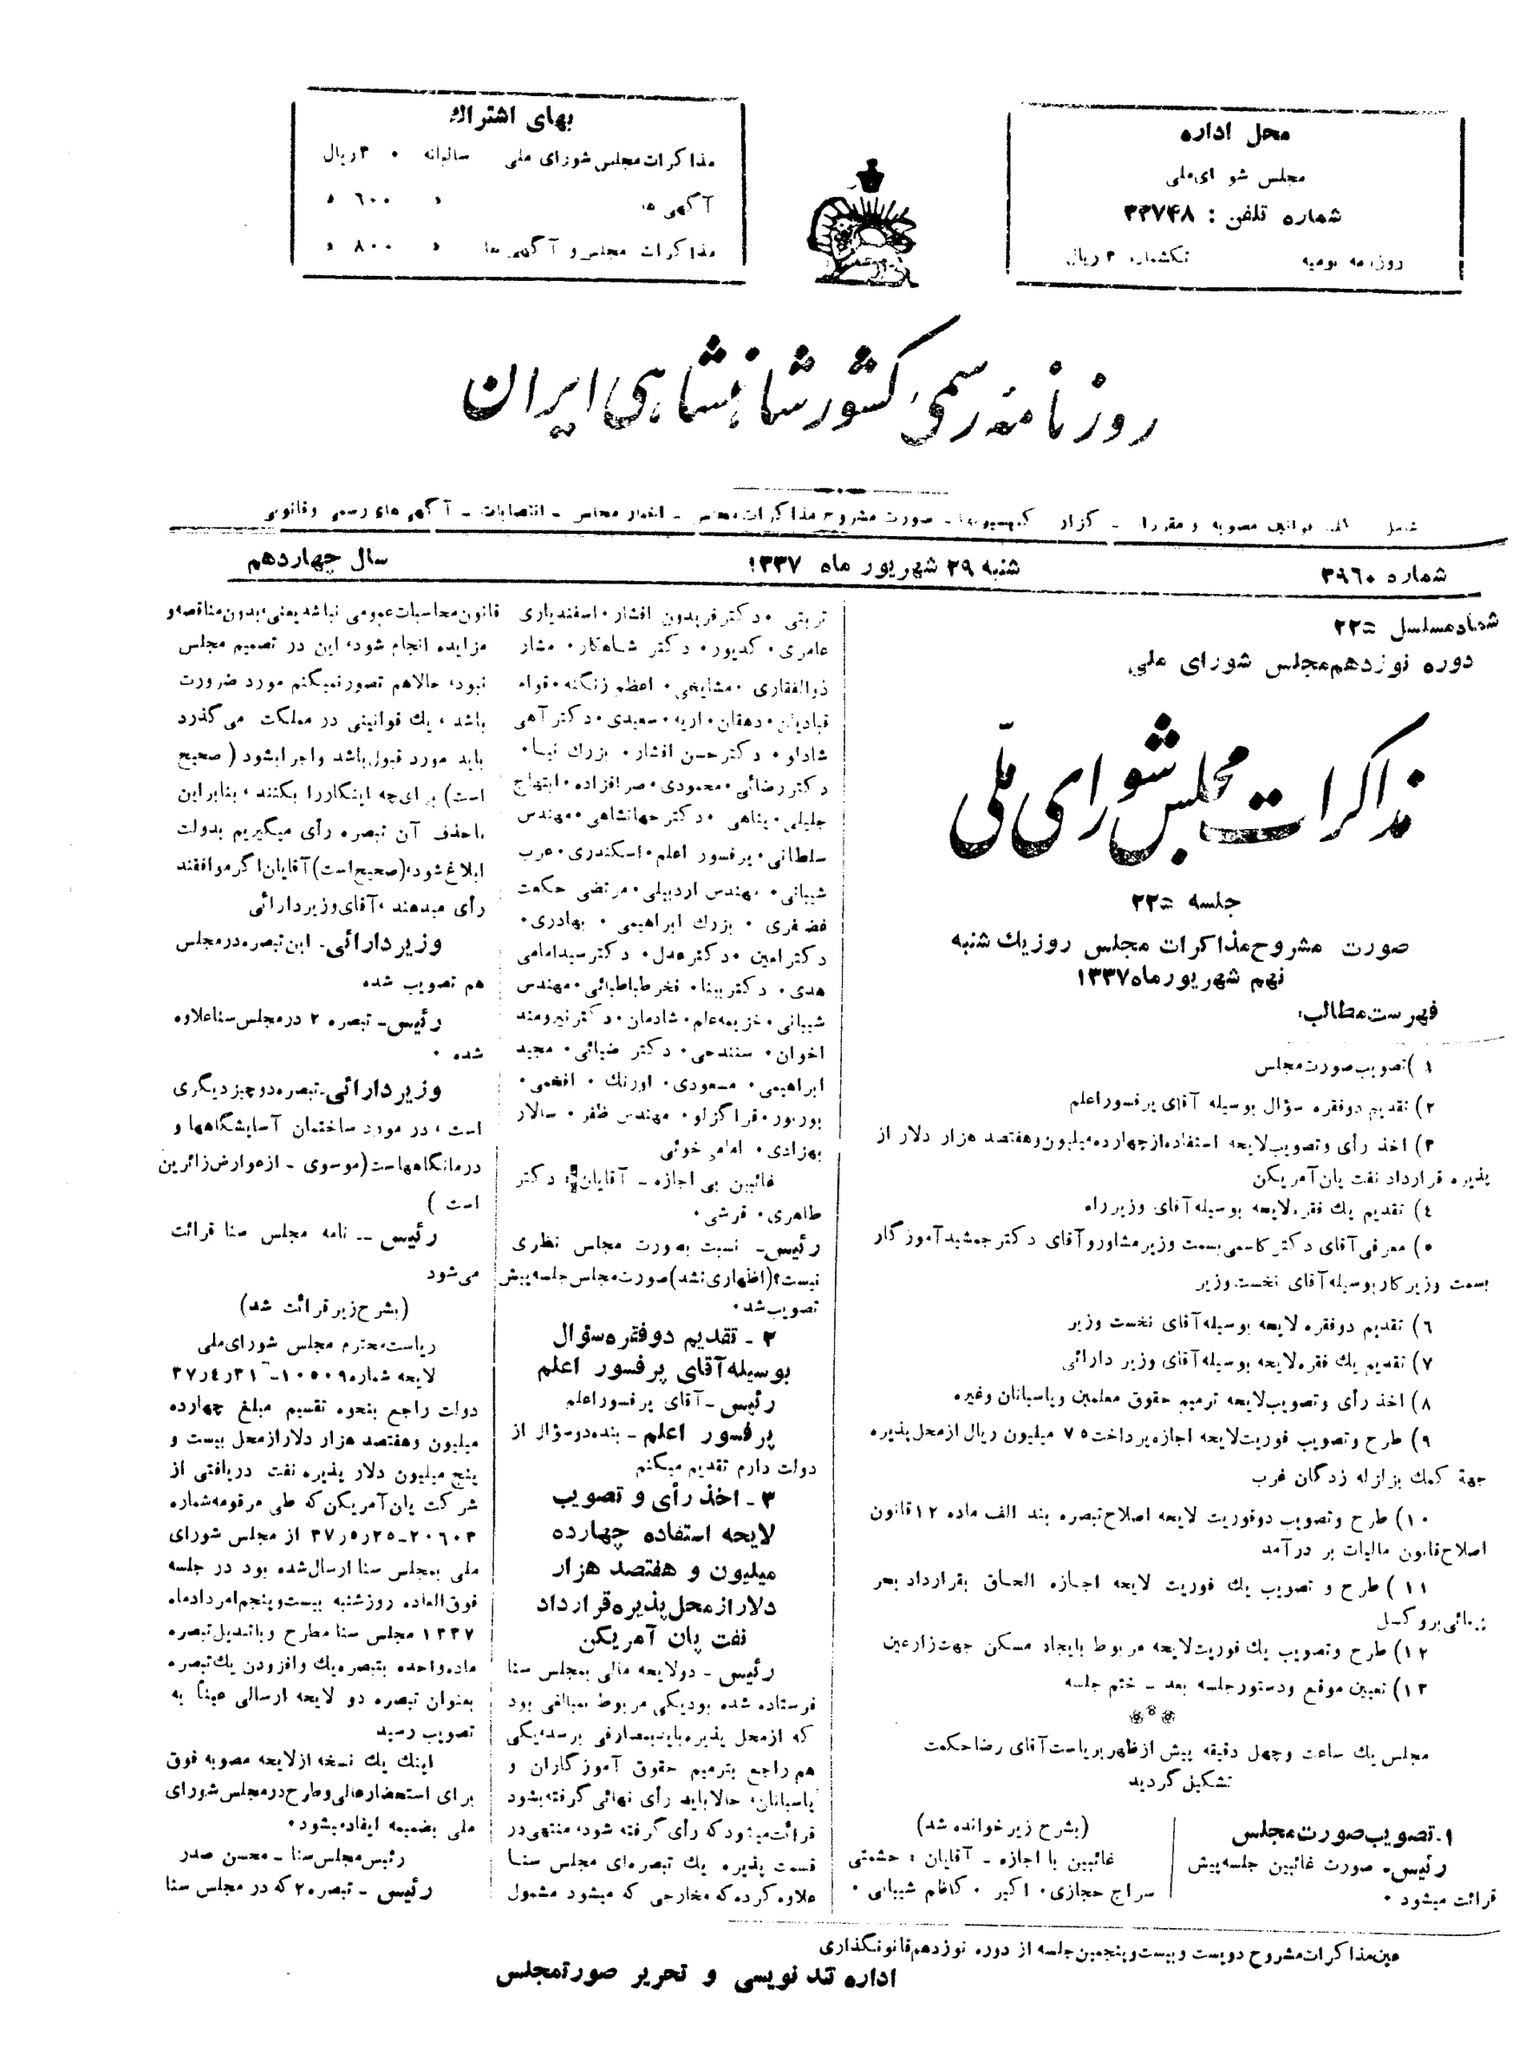 محل اداره
مجلس شو ای ملی
شماره تلفن : ۳۳۷۴۸
روزنامه یومیه تکشماره ۳ ریال
بهای اشتراك
مذاکرات مجلس شورای ملی سالیانه ۳۰ ریال
آگهی ۶۰۰
مذاکرات مجلس و آگهی ها ۸۰۰
روزنامه رسمی کشور شاهنشاهی ایران
صورت مشروح مذاکرات مجلس - اخبار مجلس - انتصابات - آگهی های رسمی و قانونی
شماره ۳۹۶۰
شنبه ۲۹ شهریور ماه ۱۳۳۷
سال چهاردهم
شماره مسلسل ۲۲۵
دوره نوزدهم مجلس شورای ملی
مذاکرات مجلس شورای ملّی
جلسه ۲۲۵
صورت مشروح مذاکرات مجلس روز یك شنبه
نهم شهریور ماه ۱۳۳۷
فهرست مطالب:
۱) تصویب صورت مجلس
۲) تقدیم دو فقره سؤال بوسیله آقای پرفسور اعلم
۳) اخذ رأی و تصویب لایحه استفاده از چهارده میلیون و هفتصد هزار دلار از
پذیره قرارداد نفت پان آمریکن
٤) تقدیم یك فقره لایحه بوسیله آقای وزیر راه
۵) معرفی آقای دکتر کاسمی بسمت وزیر مشاور و آقای دکتر جمشید آموزگار
بسمت وزیر کار بوسیله آقای نخست وزیر
٦) تقدیم دو فقره لایحه بوسیله آقای نخست وزیر
۷) تقدیم یك فقره لایحه بوسیله آقای وزیر دارائی
۸) اخذ رأی و تصویب لایحه ترمیم حقوق معلمین و پاسبانان وغیره
۹) طرح و تصویب فوریت لایحه اجازه پرداخت ۷۵ میلیون ریال از محل پذیره
جهة کمك بزلزله زدگان غرب
۱۰) طرح و تصویب دو فوریت لایحه اصلاح تبصره بند الف ماده ۱۲ قانون
اصلاح قانون مالیات بر درآمد
۱۱) طرح و تصویب یك فوریت لایحه اجازه الحاق بقرارداد بحر
بروکسل
۱۲) طرح و تصویب یك فوریت لایحه مربوط بایجاد مسکن جهت زارعین
۱۳) تعیین موقع و دستور جلسه بعد - ختم جلسه
مجلس یك ساعت و چهل دقیقه پیش از ظهر بریاست آقای رضا حکمت
تشکیل گردید
۱- تصویب صورت مجلس
رئیس - صورت غائبین جلسه پیش
قرائت میشود ·
(بشرح زیر خوانده شد)
غائبین با اجازه - آقایان : حشمتی
سراج حجازی · اکبر · کاظم شیبانی ·
تربتی · دکتر فریدون افشار · اسفندیاری
عامری · کدیور · دکتر شاهکار · مشار
ذوالفقاری · مشایخی · اعظم زنگنه · قوام
قبادیان · دهقان · اریه · سعیدی · دکتر آهی
شادلو · دکتر حسن افشار · بزرك نیا ·
دکتر رضائی · محمودی · صرافزاده · ابتهاج
جلیلی · پناهی · دکتر جهانشاهی · مهندس
سلطانی · پرفسور اعلم · اسکندری · عرب
شیبانی · مهندس اردبیلی · مرتضی حکمت
غضنفری · بزرك ابراهیمی · بهادری ·
دکتر امین · دکتر عدل · دکتر سید امامی
هدی · دکتر بینا · فخر طباطبائی · مهندس
شیبانی · خزیمه علم · شادمان · دکتر نیرومند
اخوان · سنندجی · دکتر ضیائی · مجید
ابراهیمی · مسعودی · اورنك · افخمی ·
پورپور · قراگزلو · مهندس ظفر · سالار
بهزادی · امامی خوئی
غائبین بی اجازه - آقایان : دکتر
طاهری · قرشی ·
رئیس - نسبت بصورت مجلس نظری
نیست؟ (اظهاری نشد) صورت مجلس جلسه پیش
تصویب شد ·
۲ - تقدیم دو فقره سؤال
بوسیله آقای پرفسور اعلم
رئیس - آقای پرفسور اعلم
پرفسور اعلم - بنده دو سؤال از
دولت دارم تقدیم میکنم
۳ - اخذ رأی و تصویب
لایحه استفاده چهارده
میلیون و هفتصد هزار
دلار از محل پذیره قرارداد
نفت پان آمریکن
رئیس - دو لایحه مالی بمجلس سنا
فرستاده شده بود یکی مربوط بمبالغی بود
که از محل پذیره باید بمصارفی برسد، یکی
هم راجع بترمیم حقوق آموزگاران و
پاسبانان، حالا باید رأی نهائی گرفته بشود
قرائت میشود که رأی گرفته شود، منتهی در
قسمت پذیره یك تبصره ای مجلس سنا
علاوه کرده که مخارجی که میشود مشمول
قانون محاسبات عمومی نباشد یعنی بدون مناقصه و
مزایده انجام شود، این در تصمیم مجلس
نبود، حالا هم تصور نمیکنم مورد ضرورت
باشد، یك قوانینی در مملکت می گذرد
باید مورد قبول باشد واجرا بشود (صحیح
است) برای چه اینکار را بکنند، بنابراین
باحذف آن تبصره رأی میگیریم بدولت
ابلاغ شود، (صحیح است) آقایان اگر موافقند
رأی میدهند، آقای وزیر دارائی
وزیر دارائی - این تبصره در مجلس
هم تصویب شده
رئیس - تبصره ۲ در مجلس سنا علاوه
شده ·
وزیر دارائی - تبصره دو چیز دیگری
است، در مورد ساختمان آسایشگاهها و
درمانگاههاست (موسوی - از عوارض زائرین
است)
رئیس - نامه مجلس سنا قرائت
می شود
(بشرح زیر قرائت شد)
ریاست محترم مجلس شورای ملی
لایحه شماره ۱۰۵۰۹ - ۳۱ر٤ر۳۷
دولت راجع بنحوه تقسیم مبلغ چهارده
میلیون و هفتصد هزار دلار از محل بیست و
پنج میلیون دلار پذیره نفت دریافتی از
شرکت پان آمریکن که طی مرقومه شماره
۲۰۶۰۳ - ۲۵ر۵ر۳۷ از مجلس شورای
ملی بمجلس سنا ارسال شده بود در جلسه
فوق العاده روز شنبه بیست و پنجم امرداد ماه
۱۳۳۷ مجلس سنا مطرح و با تبدیل تبصره
ماده واحده بتبصره یك و افزودن یك تبصره
بعنوان تبصره دو لایحه ارسالی عیناً به
تصویب رسید
اینك یك نسخه از لایحه مصوبه فوق
برای استحضار عالی و طرح در مجلس شورای
ملی بضمیمه ایفاد میشود ·
رئیس مجلس سنا - محسن صدر
رئیس - تبصره ۲ که در مجلس سنا
عین مذاکرات مشروح دویست و بیست و پنجمین جلسه از دوره نوزدهم قانونگذاری
اداره تند نویسی و تحریر صورتمجلس